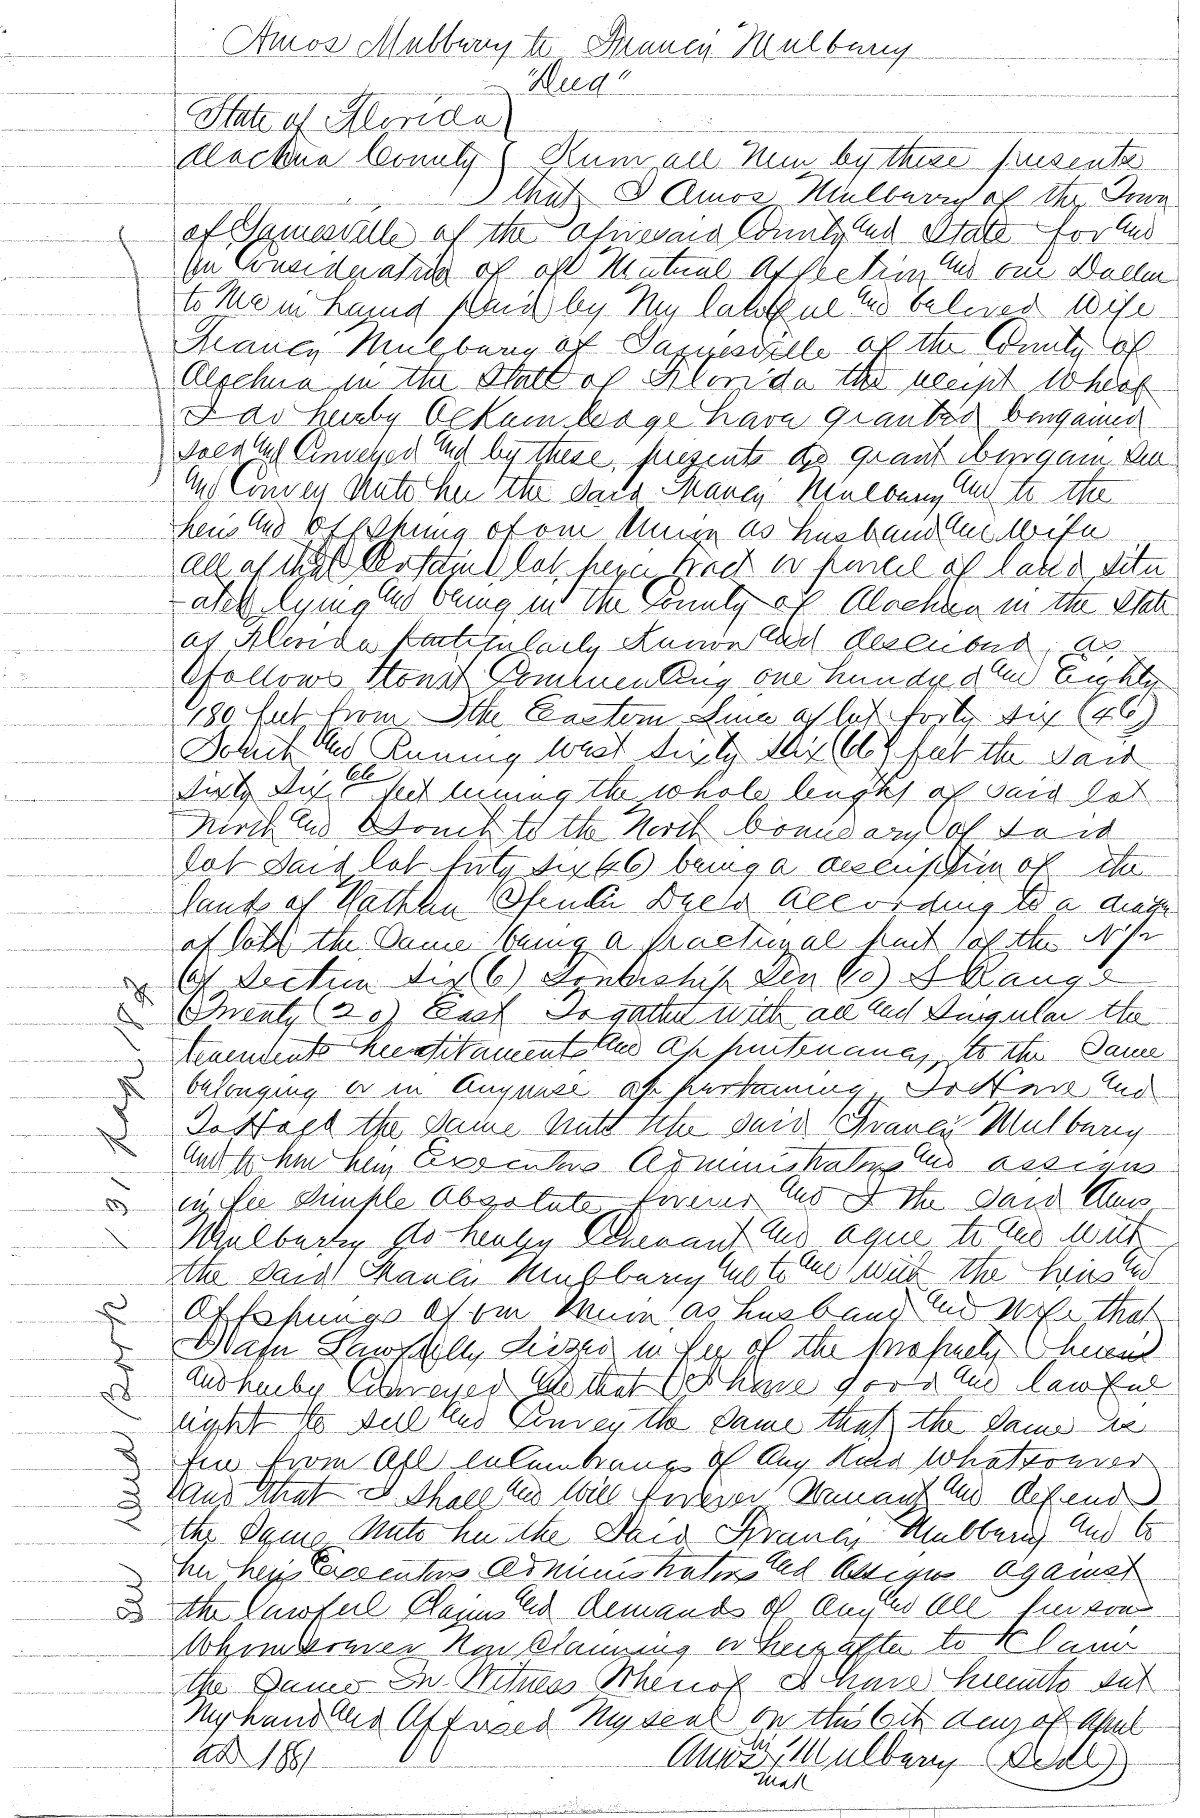 Amos Mulbury to Francis Mulbury
"Deed"
State of Florida
Alachua County } Know all Men by these presents
that I Amos Mulbury of the Town
of Gainesville of the aforesaid County and State for and
in Consideration of of Mutual Affection and one Dollar
to Me in hand paid by My lawful and beloved Wife
Francis Mulbury of Gainesville of the County of
Alachua in the State of Florida the receipt Wheof
I do hereby Acknowledge have granted bargained
sold and Conveyed and by these presents do grant bargain sell
and Convey Unto her the said Francis Mulbury and to the
heirs and Offspring of our Union as husband and Wife
All of that Certain lot, peice tract or parcel of land situ
-ated lying and being in the County of Alachua in the State
of Florida particularly Known and described as
follows to wit Commencing one hundred and Eighty
180 feet from the Eastern Line of lot forty six (46)
South and Running West sixty six (66) feet the said
sixty six 66 feet running the whole lenght of said lot
North and South to the North boundary of said
lot said lot forty six (46) being a description of the
lands of Nathan Decd According to a
of lots the Same being a fractional part of the
of Section Six (6) Township Ten (10) S Range
Twenty (20) East Togather with all and Singular the
tenements hereditaments and appurtenances, to the Same
belonging or in Anywise appertaining To Have and
To Hold the Same Unto the said Francis Mulbury
and to her heirs Executors Administrators and assigns
in fee Simple Absolute forever and I the Said Amos
Mulbury do hereby Covenant and agree to and with
the Said Francis Mulbury and to and with the heirs and
Offsprings of our Union as husband and Wife that
I am Lawfully Siezed in fee of the property herein
and hereby Conveyed and that I have good and lawful
right to sell and Convey the Same that the Same is
free from All encumbrances of Any Kind Whatsoever
and that I shall and Will forever Warrant and defend
the Same Unto her the Said Francis Mulbury and to
her heirs Executors Administrators and Assigns against
the lawful Claims and demands of Any and All persons
Whomsoever Now Claiming or hereafter to Claim
the Same In Witness Whereof I have hereunto set
My hand and Affixed My seal on this 6th day of April
AD 1881 Amos his Mulbury (Seal)
mark
See Deed Book 131 Page 182